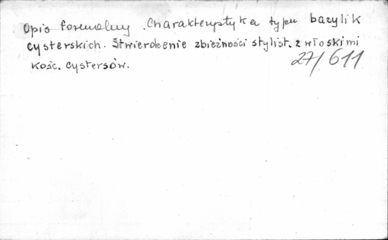 Opis formalny. Charakterystyka typu bazylik
cysterskich. Stwierdzenie zbieżności stylist. z włoskimi
kość. cystersów.
27/611